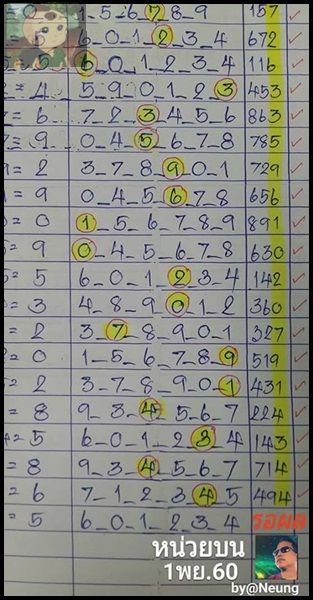 = 0 1_5_6_7_8_9 157 ✓
6_0_1_2_3_4 672 ✓
= 5 6_0_1_2_3_4 116 ✓
= 4 5_9_0_1_2_3 453 ✓
= 6 7_2_3_4_5_6 863 ✓
= 9 0_4_5_6_7_8 785 ✓
= 2 3_7_8_9_0_1 729 ✓
= 9 0_4_5_6_7_8 656 ✓
= 0 1_5_6_7_8_9 891 ✓
= 9 0_4_5_6_7_8 630 ✓
= 5 6_0_1_2_3_4 142 ✓
= 3 4_8_9_0_1_2 360 ✓
= 2 3_7_8_9_0_1 327 ✓
= 0 1_5_6_7_8_9 519 ✓
= 2 3_7_8_9_0_1 431 ✓
= 8 9_3_4_5_6_7 224 ✓
= 5 6_0_1_2_3_4 143 ✓
= 8 9_3_4_5_6_7 714 ✓
= 6 7_1_2_3_4_5 494 ✓
= 5 6_0_1_2_3_4 รอผล
หน่วยบน
1พย.60
by@Neung